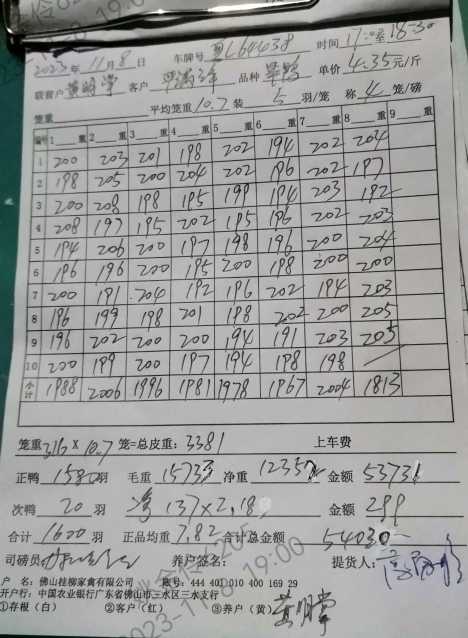 2023年11月8日 车牌号 时间 17:00至18:30
联营户 客户 品种 单价 4.35元/斤
笼重 平均笼重10.7 装 5 羽/笼 称 4 笼/磅
编号 1 重 2 重 3 重 4 重 5 重 6 重 7 重 8 重 9 重
1 200 203 201 198 202 194 202 204
2 198 205 200 204 202 196 202 197
3 200 208 198 195 199 194 203 192
4 208 197 195 202 195 196 202 203
5 194 206 200 197 198 196 200 204
6 196 196 200 195 200 198 200 200
7 200 191 204 192 196 202 194 203
8 196 199 198 201 188 202 200 205
9 196 202 200 200 194 191 203 205
10 200 199 200 197 194 198 198
小计 1988 2006 1996 1981 1978 1967 2004 1813
笼重316 X 10.7 笼=总皮重:3381 上车费
正鸭 1580羽 毛重 15733 净重 12352 金额 53731
次鸭 20 羽 137×2.18 金额 299
合计 1600 羽 正品均重 7.82 合计总金额 54030
司磅员 养户签名: 提货人:
户 名:佛山桂柳家禽有限公司 账号:444 401 010 400 169 29
开户行:中国农业银行广东省佛山市三水区三水支行
①存根(白) ②客户(红) ③养户(黄)